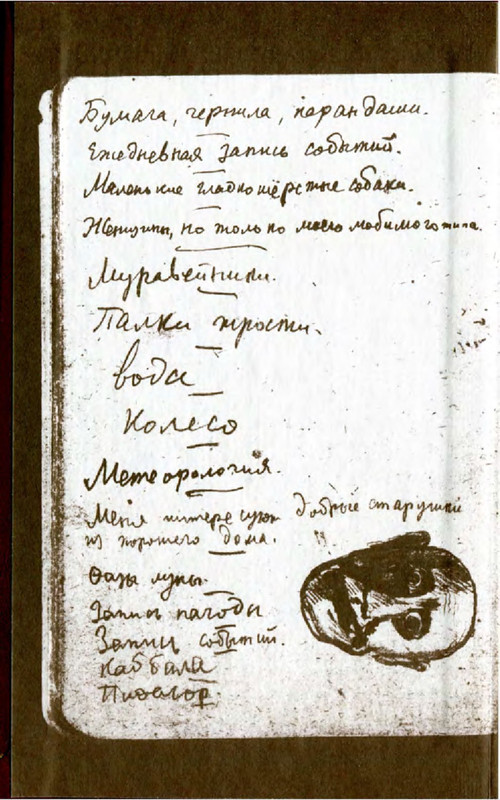 Бумага, чернила, карандаши.
Ежедневная запись событий.
Маленькие гладкошёрстные собаки.
Женщины, но только моего любимого типа.
Муравейники.
Палки трости.
вода
Колесо
Метеорология.
Меня интересуют добрые старушки
из хорошего дома.
Фазы луны.
Запись пагоды
Запись событий.
Каббала
Пифагор.